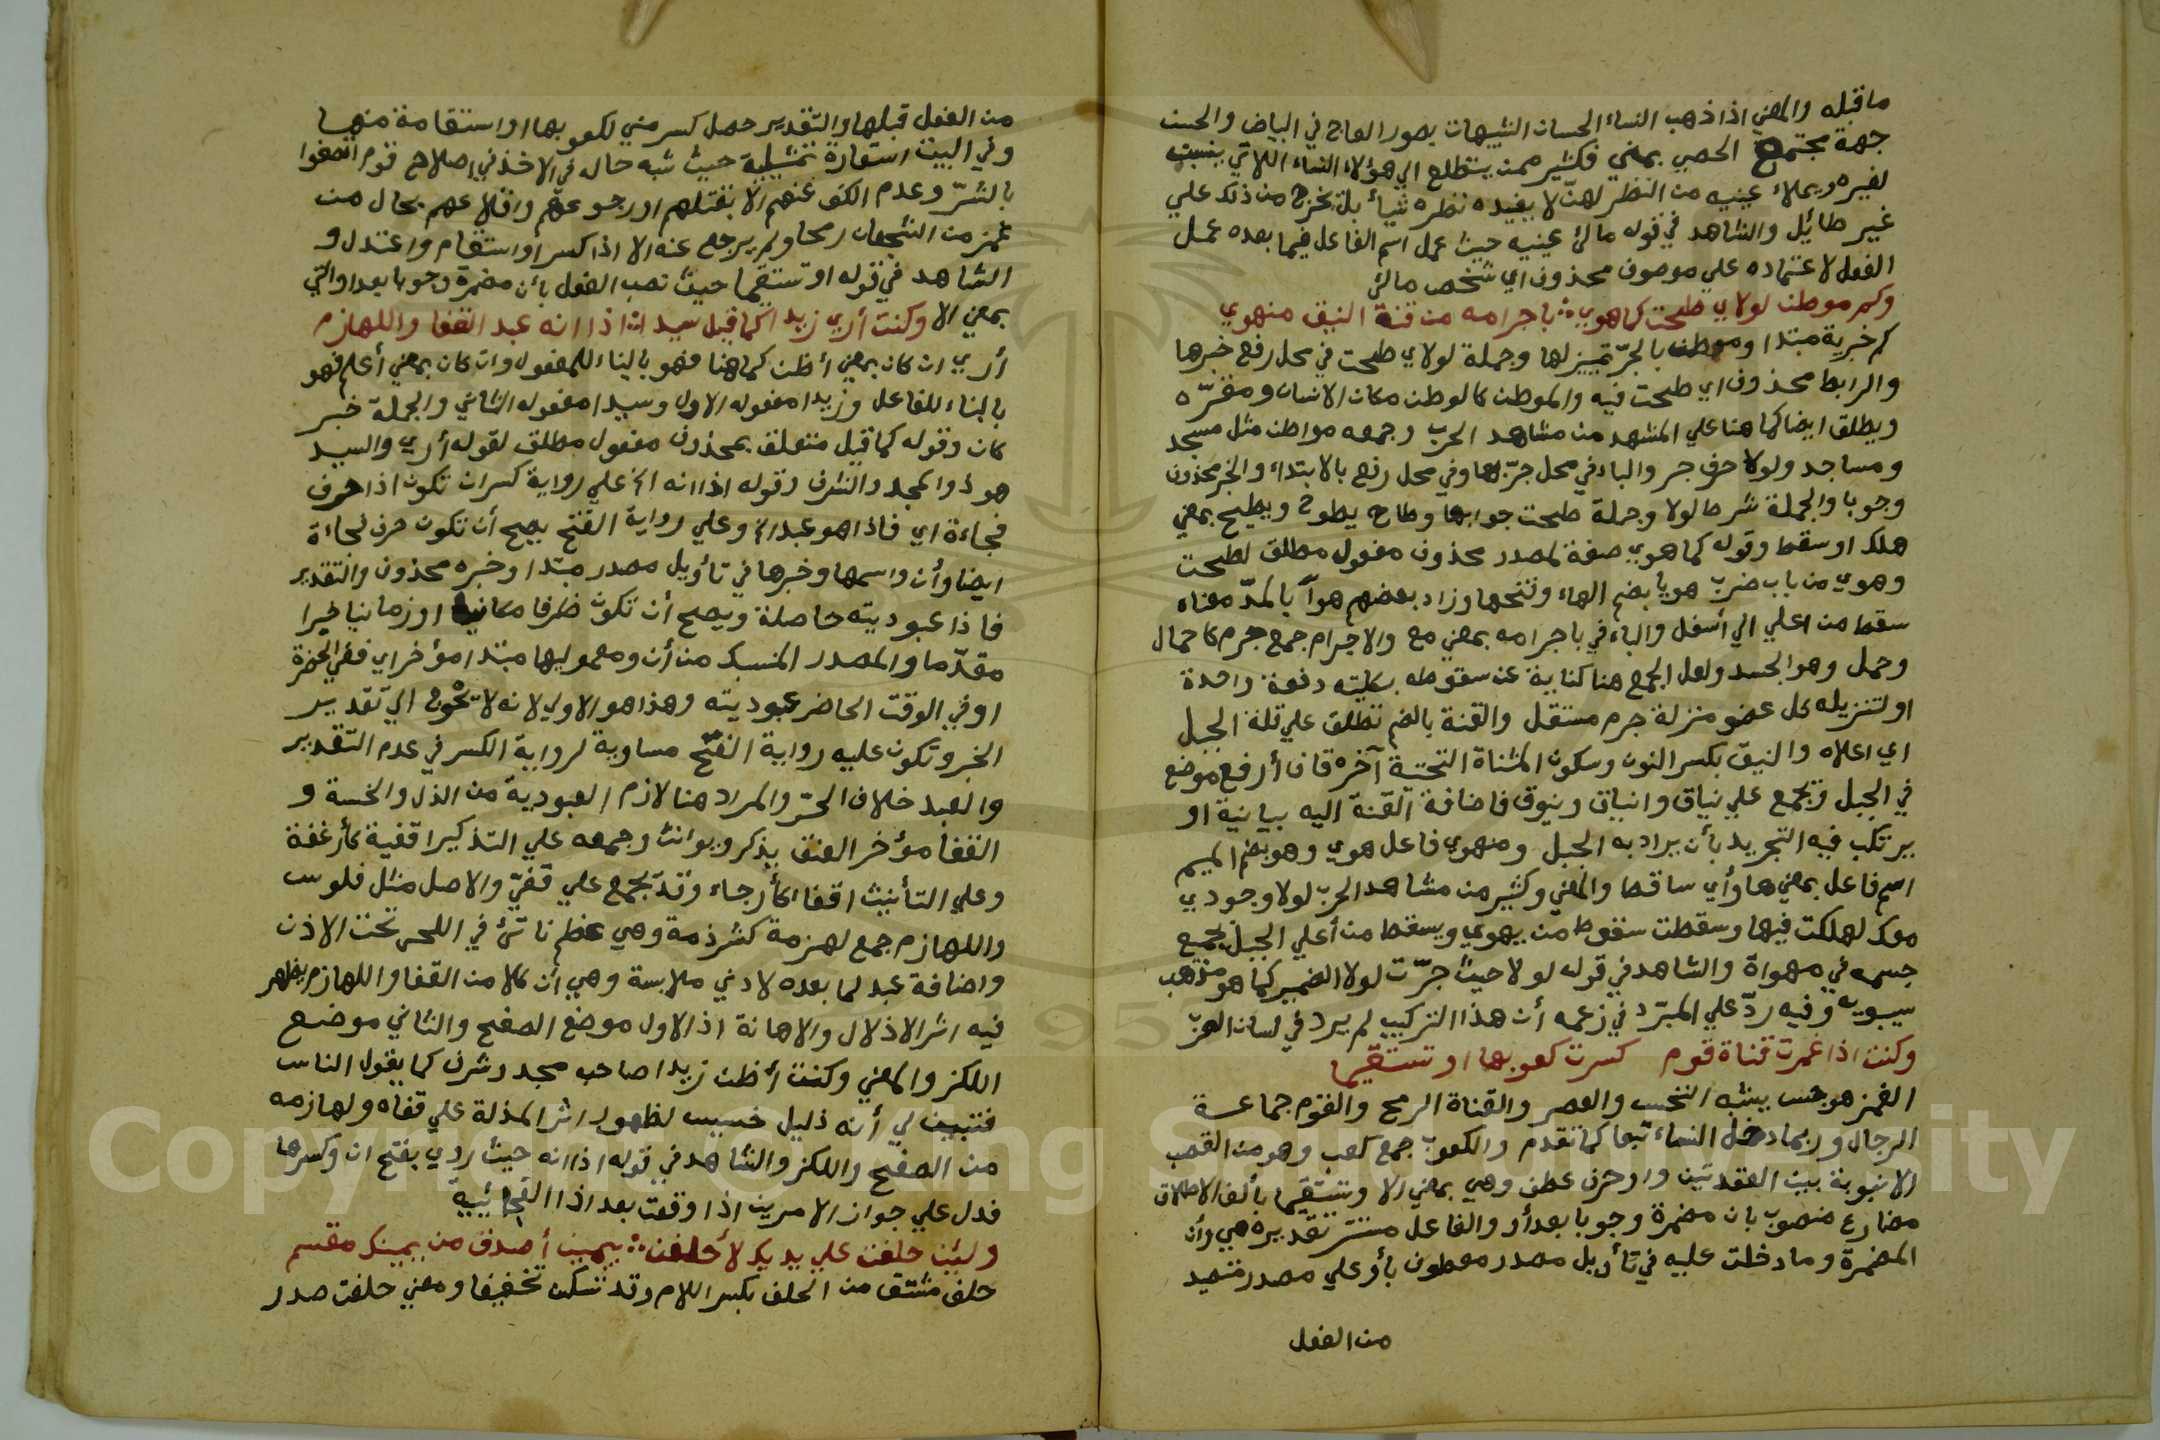 ما قبله والمعني اذا ذهب النساء الحسان الشبيهات بصور العاج في البياض والحسن
جهة مجتمع الحصي بمني فكثير ممن يتطلع الي هؤلاء النساء اللاتي ينسبن
لغيره ويملاء عينيه من النظر لهنّ لا يفيده نظره شيأ بل يخرج من ذلك علي
غير طائل والشاهد في قوله مالئ عينيه حيث عمل اسم الفاعل فيما بعده عمل
الفعل لاعتماده علي موصوف محذوف اي شخص مالئ
وكم موطن لولاي طحت كما هوي باجرامه من قنة النيق منهوي
كم خبرية مبتدا وموطن بالجرّ تمييز لها وجملة لولاي طحت في محل رفع خبرها
والرابط محذوف اي طحت فيه والموطن كالوطن مكان الانسان ومقرّه
ويطلق ايضا كما هنا علي المشهد من مشاهد الحرب وجمعه مواطن مثل مسجد
ومساجد ولولا حرف جر والياء في محل جرّ بها وفي محل رفع بالابتداء والخبر محذوف
وجوبا والجملة شرط لولا وجملة طحت جوابها وطاح يطوح ويطيح بمعني
هلك او سقط وقوله كما هوي صفة لمصدر محذوف مفعول مطلق لطحت
وهوي من باب ضرب هويا بضم الهاء وفتحها وزاد بعضهم هوآء بالمدّ معناه
سقط من اعلي الي أسفل والباء في باجرامه بمعني مع والاجرام جمع جرم كاحمال
وحمل وهو الجسد ولعل الجمع هنا كناية عن سقوطه بكليته دفعة واحدة
او لتنزيله كل عضو منزلة جرم مستقل والقنة بالضم تطلق علي قلة الجبل
اي اعلاه والنيق بكسر النون وسكون المثناة التحتية آخره قاف أرفع موضع
في الجبل ويجمع علي نياق وانياق ونيوق فاضافة القنة اليه بيانية او
يرتكب فيه التجريد بأن يراد به الجبل ومنهوي فاعل هوي وهو بضم الميم
اسم فاعل بمعني هاو أي ساقط والمعني وكثير من مشاهد الحرب لولا وجودي
معك لهلكت فيها وسقطت سقوط من يهوي ويسقط من أعلي الجبل بجميع
جسمه في مهواة والشاهد في قوله لولا حيث جرّت لولا الضمير كما هو مذهب
سيبويه وفيه ردّ علي المبرّد في زعمه أن هذا التركيب لم يرد في لسان العرب
وكنت اذا غمزت قناة قوم كسرت كعوبها او تستقيما
الغمز هو جس يشبه النخس والعصر والقناة الرمح والقوم جماعة
الرجال وربما دخل النساء تبعا كما تقدم والكعوب جمع كعب وهو من القصب
الانبوبة بين العقدتين واو حرف عطف وهي بمعني الا وتستقيما بألف الاطلاق
مضارع منصوب بان مضمرة وجوبا بعد أو والفاعل مستتر تقديره هي وأن
المضمرة وما دخلت عليه في تأويل مصدر معطوف بأو علي مصدر متصيد
من الفعل
من الفعل قبلها والتقدير حصل كسر مني لكعوبها او استقامة منها
وفي البيت استعارة تمثيلية حيث شبه حاله في الاخذ في اصلاح قوم اتصفوا
بالشرّ وعدم الكف عنهم الا بقتلهم او رجوعهم واقلاعهم بحال من
غمز من الشجعان رمحا ولم يرجع عنه الا اذا كسر او استقام واعتدل و
الشاهد في قوله او تستقيما حيث نصب الفعل بأن مضمرة وجوبا بعد او التي
بمعني الا وكنت أري زيدا كما قيل سيدا اذا انه عبد القفا واللهازم
أري ان كان بمعني أظن كما هنا فهو بالبناء للمفعول وان كان بمعني أعلم فهو
بالبناء للفاعل وزيدا مفعوله الاول وسيدا مفعوله الثاني والجملة خبر
كان وقوله كما قيل متعلق بمحذوف مفعول مطلق لقوله أري والسيد
هو ذو المجد والشرف وقوله اذا انه الخ علي رواية كسر ان تكون اذا حرف
فجاءة اي فاذا هو عبد الخ وعلي رواية الفتح يصح أن تكون حرف فجاءة
ايضا وأن واسمها وخبرها في تأويل مصدر مبتدا وخبره محذوف والتقدير
فاذا عبوديته حاصلة ويصح أن تكون ظرفا مكانيا او زمانيا خبرا
مقدّما والمصدر المنسبك من أن ومعموليها مبتدا مؤخر اي ففي الحضرة
او في الوقت الحاضر عبوديته وهذا هو الاولي لانه لا يحوج الي تقدير
الخبر وتكون عليه رواية الفتح مساوية لرواية الكسر في عدم التقدير
والعبد خلاف الحرّ والمراد هنا لازم العبودية من الذل والخسة و
القفا مؤخر العنق يذكر ويؤنث وجمعه علي التذكير اقفية كأرغفة
وعلي التأنيث اقفاء كأرجاء وقد يجمع علي قفيّ والاصل مثل فلوس
واللهازم جمع لهزمة كشرذمة وهي عظم ناتئ في اللحي تحت الاذن
واضافة عبد لما بعده لادني ملابسة وهي أن كلا من القفا واللهازم يظهر
فيه اثر الاذلال والاهانة اذ الاول موضع الصفع والثاني موضع
اللكز والمعني وكنت أظن زيدا صاحب مجد وشرف كما يقول الناس
فتبين لي أنه ذليل خسيس لظهور اثر المذلة علي قفاه ولهازمه
من الصفع واللكز والشاهد في قوله اذا انه حيث روي بفتح ان وكسرها
فدل علي جواز الامرين اذا وقعت بعد اذا الفجائيية
ولئن حلفت علي يديك لأحلفن بيمين أصدق من يمينك مقسم
حلف مشتق من الحلف بكسر اللام وقد تسكن تخفيفا ومعني حلفت صدر
Copyright © King Saud University